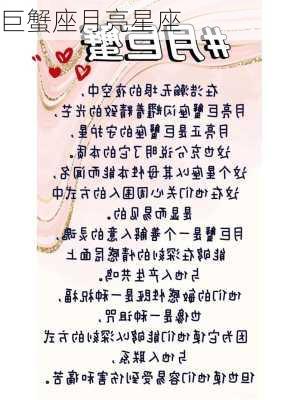 巨蟹座月亮星座
#月巨蟹
在浩瀚无垠的夜空中，
月亮巨蟹座闪耀着精致的光芒，
月亮正是巨蟹座的守护星，
这也充分说明了它的本质。
这个星座以其母性本能而闻名，
这在他们关心周围人的方式中
是显而易见的。
月巨蟹是一个善解人意的灵魂，
能够在深刻的情感层面上
与他人产生共鸣。
他们的敏感性既是一种祝福，
也像是一种诅咒，
因为它使他们能够以深刻的方式
与人联系，
但也使他们容易受到伤害和痛苦。